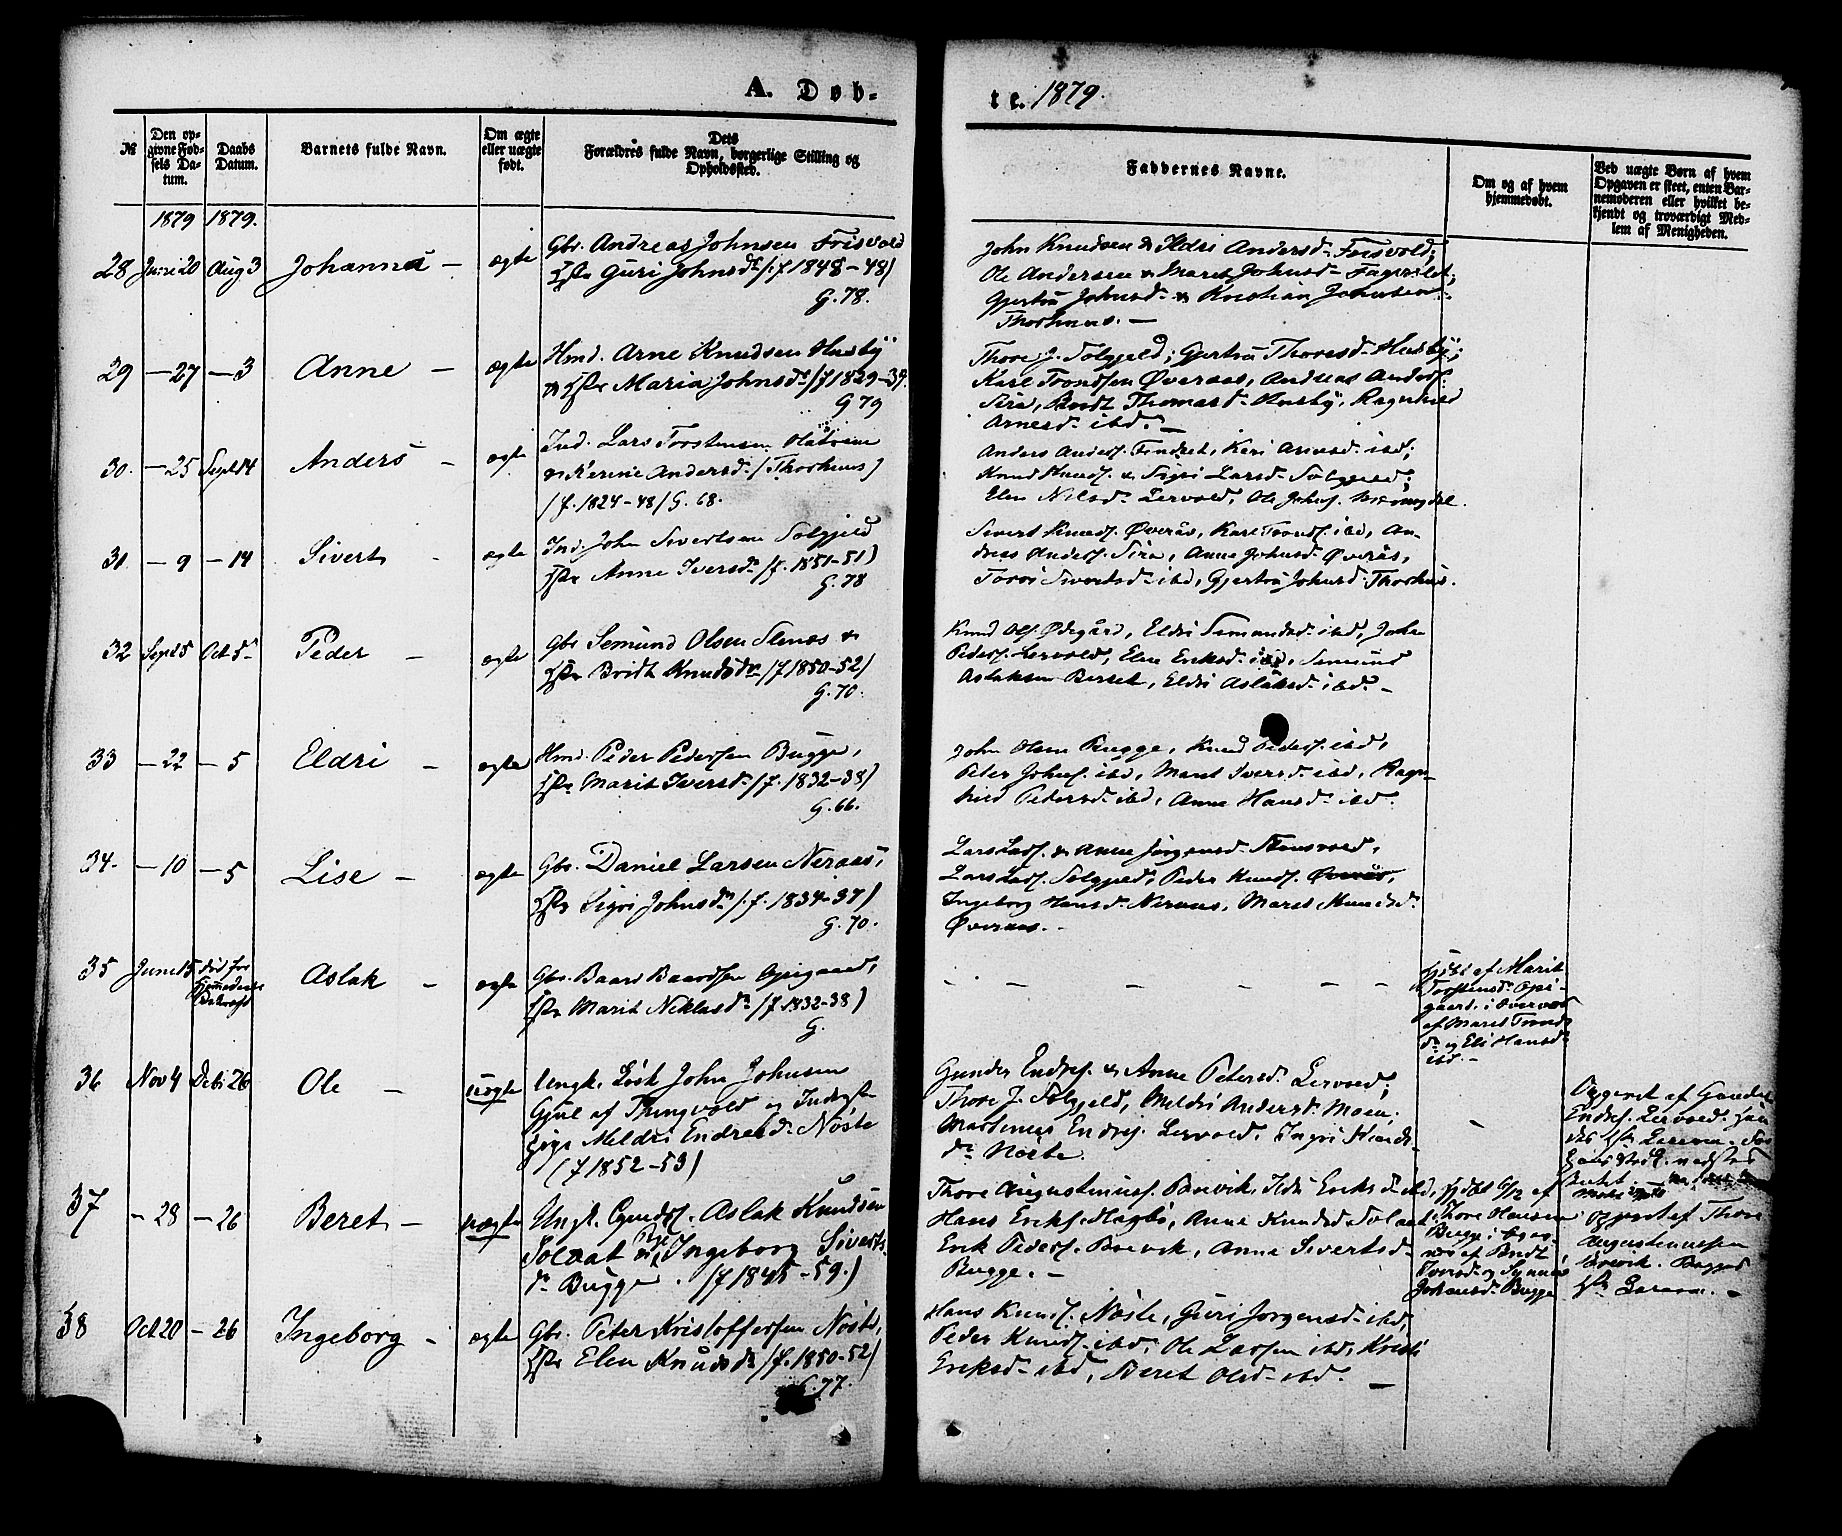 A. Døb-
te. 1879.
№
Den op-
givne Fød-
sels Da-
tum.
Daabs
Datum.
Barnets fulde Navn.
Om ægte
eller uægte
født.
Dets
Forældres fulde Navn, borgerlige Stilling og
Opholdssted.
Faddernes Navne.
Om og af hvem
hjemmedøbt.
Ved uægte Børn af hvem
Opgaven er skeet, enten Bar-
nemoderen eller hvilket be-
kjendt og troværdigt Med-
lem af Menigheden.
1879 1879.
28 Juni 20 Aug 3 Johanna - ægte
Gbr. Andreas Johnsen Frisvold
Hstr Guri Johnsdr (f. 1848-48)
G. 78.
John Knudsen & Ildri Andersd. Frisvold;
Ole Andersen & Marit Johnsd.
Gjertru Johnsd. & Kristian Johnsen
Thorhuus. -
29 - 27 - 3 Anne - ægte
Hmd. Arne Knudsen Husby
& Hstr Maria Johnsdr (f 1829-34.
G 79
Thore J. Solgjeld; Gjertru Thoresd. Husby;
Karl Trondsen Øveraas, Andreas Anders.
Sira, Brodt Thomasd. Husby, Ragnhild
Arnesd. ibd. -
30. - 25 Sept 14 Anders - ægte
Ind. Lars Torstensen
& Kerine Andersd. (Thorhuus)
(f. 1824-48) G. 68.
Anders Anders. Kari Arnesd. ibd;
Knud & Sigri Larsd. Solgjeld;
Elen Nilsd. Lervold, Ole Johns.
31 - 9 - 14 Sivert - ægte
Ind. John Sivertsen Solgjeld
Hstr Anne Iversdr (f. 1851-51)
G. 78
Sivert Knuds. Øverås, Karl Tronds. ibd, An-
dreas Anders. Sira, Anne Johnsd. Øverås,
Sivertsd. ibd, Gjertru Johnsd. Thorhuus.
32 Sept 5 Oct 5 Peder - ægte
Gbr Semund Olsen Stenes &
Hstr Bridt Knudsdr (f 1850-52)
G. 70.
Knud Ols. Ødegård, Eldri Semundsd. ibd, John
Peders. Lervold, Elen Eriksd. ibd, Semund
Aslaksen Berset, Eldri Aslaksd. ibd. -
33 - 22 - 5 Eldri - ægte
Hmd. Peder Pedersen Bugge,
Hstr Marit Iversd. (f. 1832-38)
G. 66.
John Olsen Bugge, Knud Peders. ibd,
Peter Johns. ibd, Marit Iversd. ibd, Ragn-
hild Pedersd. ibd, Anne Hansd. ibd.
34. - 10 - 5 Lise - ægte
Gbr. Daniel Larsen Neraas,
Hstr Sigri Johnsdr (f. 1834-37)
G. 70.
Lars Lars. & Anne Jørgensd.
Lars Lars. Solgjeld, Peder Knuds. Øverås,
Ingeborg Hansd. Neraas, Marit Knudsd.
Øveraas. -
35 Juni 15 død før
Aslak - ægte
Gbr. Baard Baardsen Opigaard,
Hstr Marit Niklasdr (f. 1832-38)
G.
- - - - - -
hjdbt af Marit
Torstensd. Opi-
gaard, i Overvær
af Marit Tronds-
dr og Eli Hansd.
ibd. -
36 Nov 4 Dcbr 26 Ole - uægte
Ungk. Løsk John Johnsen
Gjul af Thingvold og Indregte
Pige Meldri Endresd. Nøste
(f 1852-53)
Gunder Endres. & Anne Petersd. Lervold;
Thore J. Solgjeld, Meldri Andersd. Moen.
Martinus Endres. Lervold, Ingri
dr Nøste.
-
Opgivet af Gunder
Endres. Lervold.
37 - 28 - 26 Beret - uægte
Ungk. Aslak Knudsen
Solvat og Pge Ingeborg Siverts-
dr Bugge. (f 1845-59.)
Thore Augustinuss. Brevik, Ildri Eriksd. ibd,
Hans Eriks. Hagbø, Anne Knudsd. Solvat
Erik Peders. Brevik, Anne Sivertsd.
Bugge. -
hjdbt 6/12 af
Thore Hansen
Bugge i Over-
vær af Brodt
Iversd. og Synnøv
Johansd. Bugge
Opgivet af Thore
Augustinussen
Brevik.
38 Oct 20 - 26 Ingeborg - ægte
Gbr. Peter Kristoffersen Nøste,
Hstr Elen Knudsdr (f. 1850-52)
G. 77.
Hans Knuds. Nøste, Guri Jørgensd. ibd,
Peder Knuds. ibd, Ole Larssen ibd, Kristi
Eriksd. ibd, Beret Olsd. ibd. -